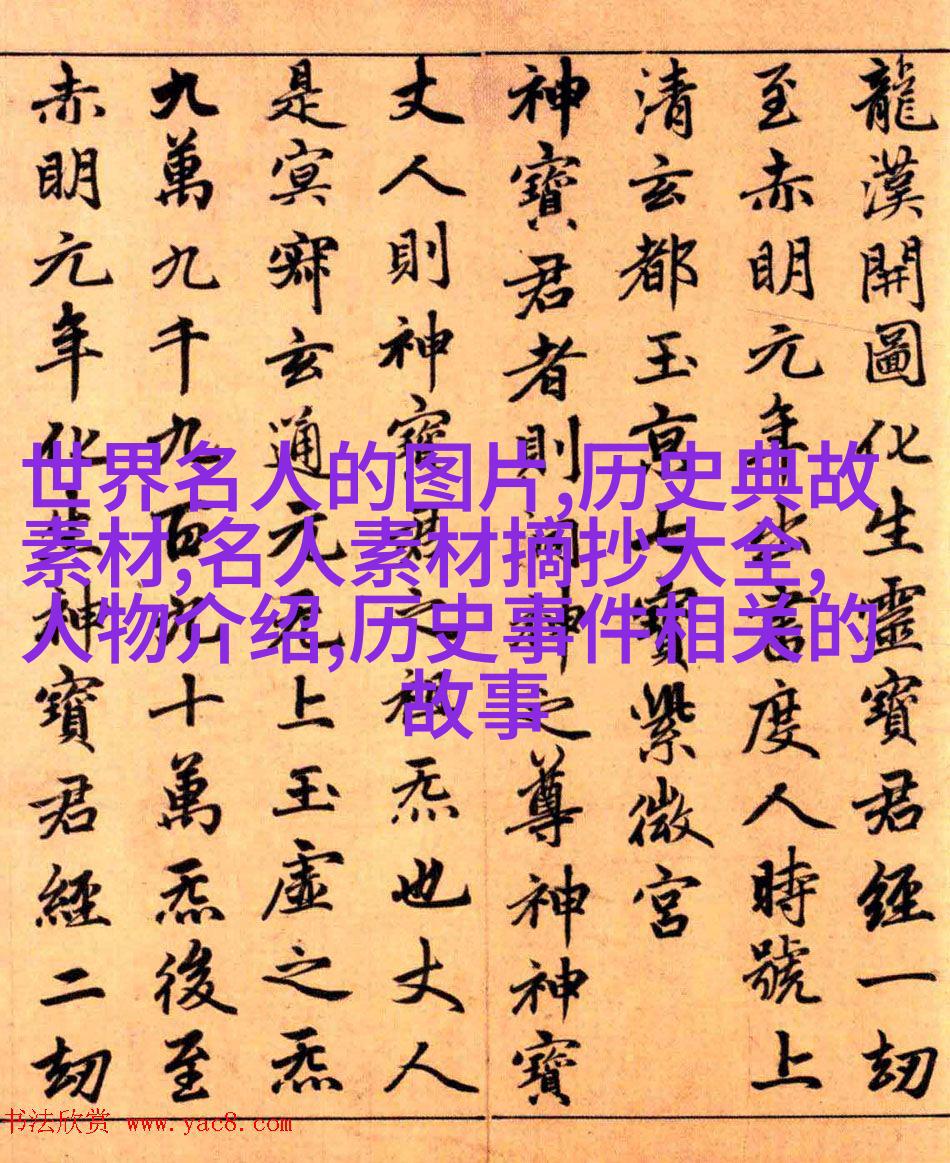 龍漢開圖化生靈寶君經一劫
至赤明元年出書度人時號上
清玄都玉京七寶紫微宮
神寶君者則洞神之尊神神寶
丈人則神神寶君之祖炁也丈人
是寘寂玄通元无上玉虛之炁
九萬九千九百九十萬炁後至
赤明元年化生神寶君經二劫
世界名人的图片,历史典故
素材,名人素材摘抄大全,
人物介绍,历史事件相关的
故事
书法欣赏 www.yac8.com